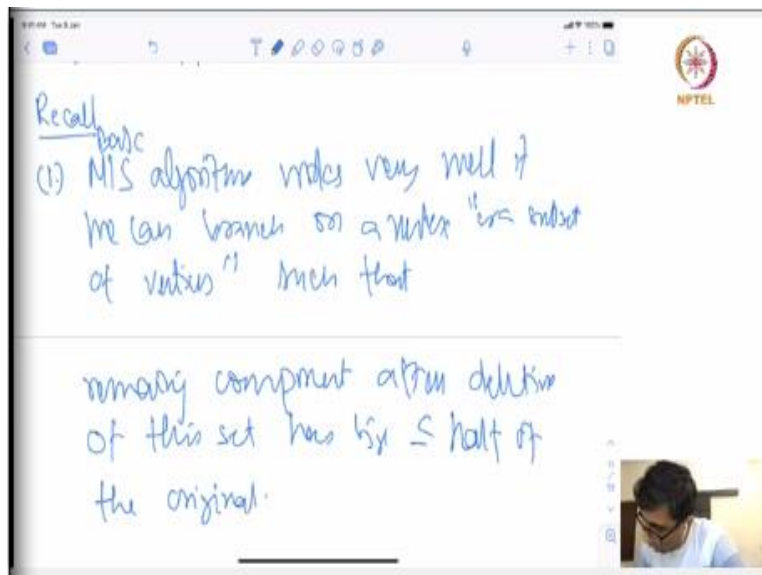 Recall
basic
(1) MIS algorithm works very well if
we can branch on a vertex "or a subset
of vertices" such that
remaining component after deletion
of this set has size ≤ half of
the original.
NPTEL